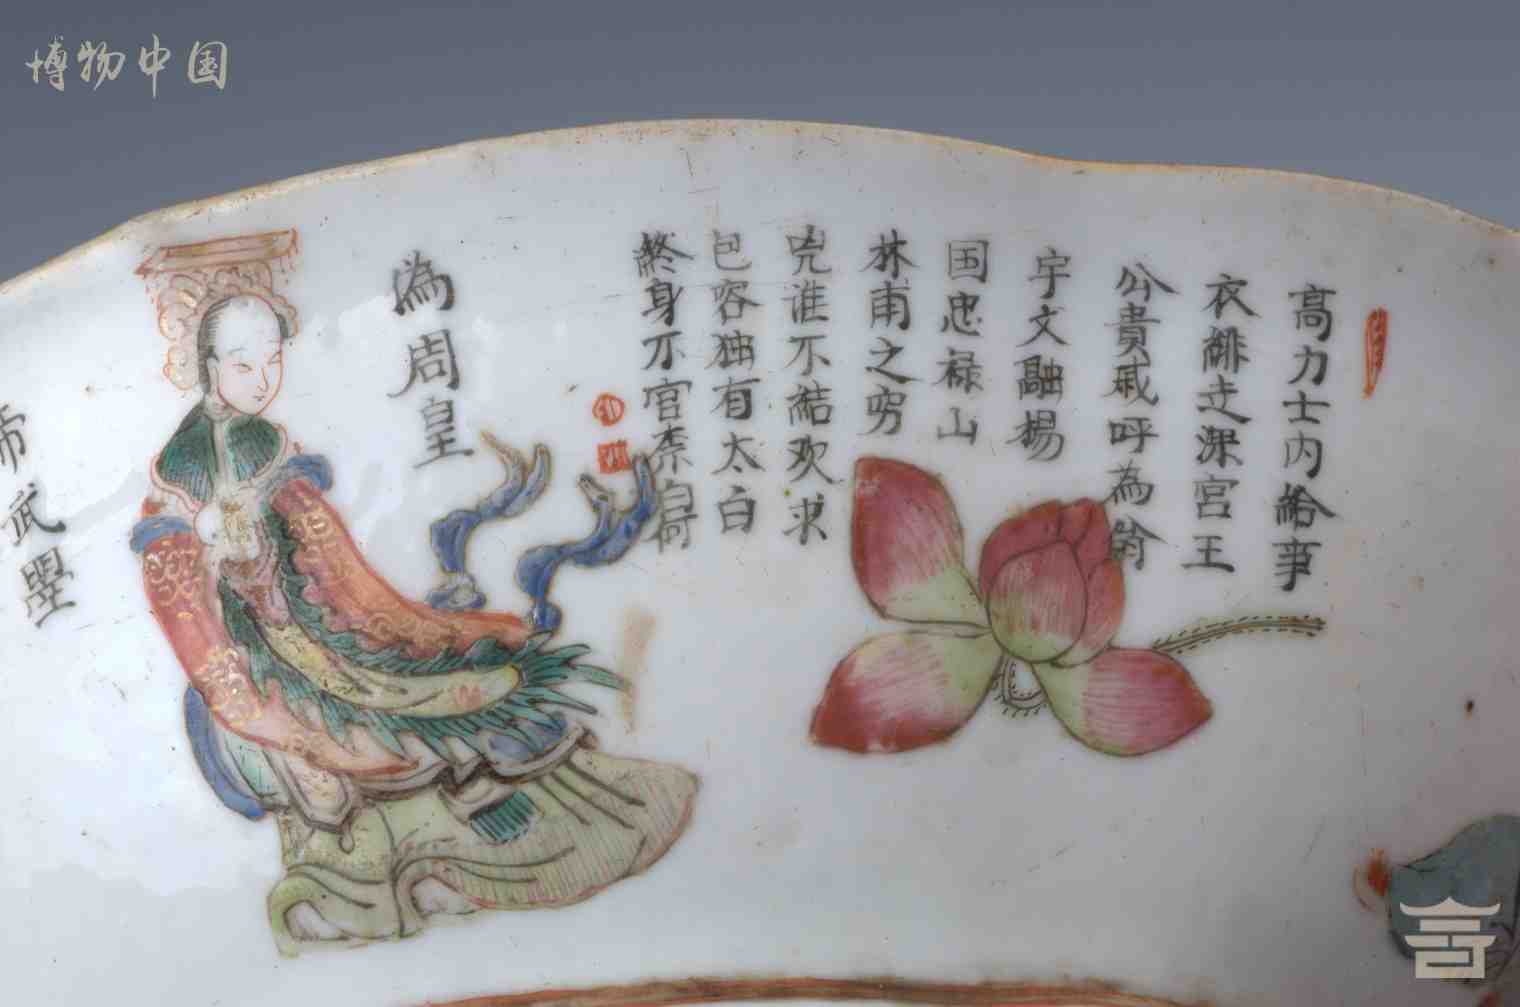 博物中国
高力士内給事
衣緋走深宫王
公貴戚呼為爺
宇文融楊
国忠禄山
林甫之穷
兇谁不結欢求
包容独有太白
終身不官柰自苛
為周皇
帝武曌